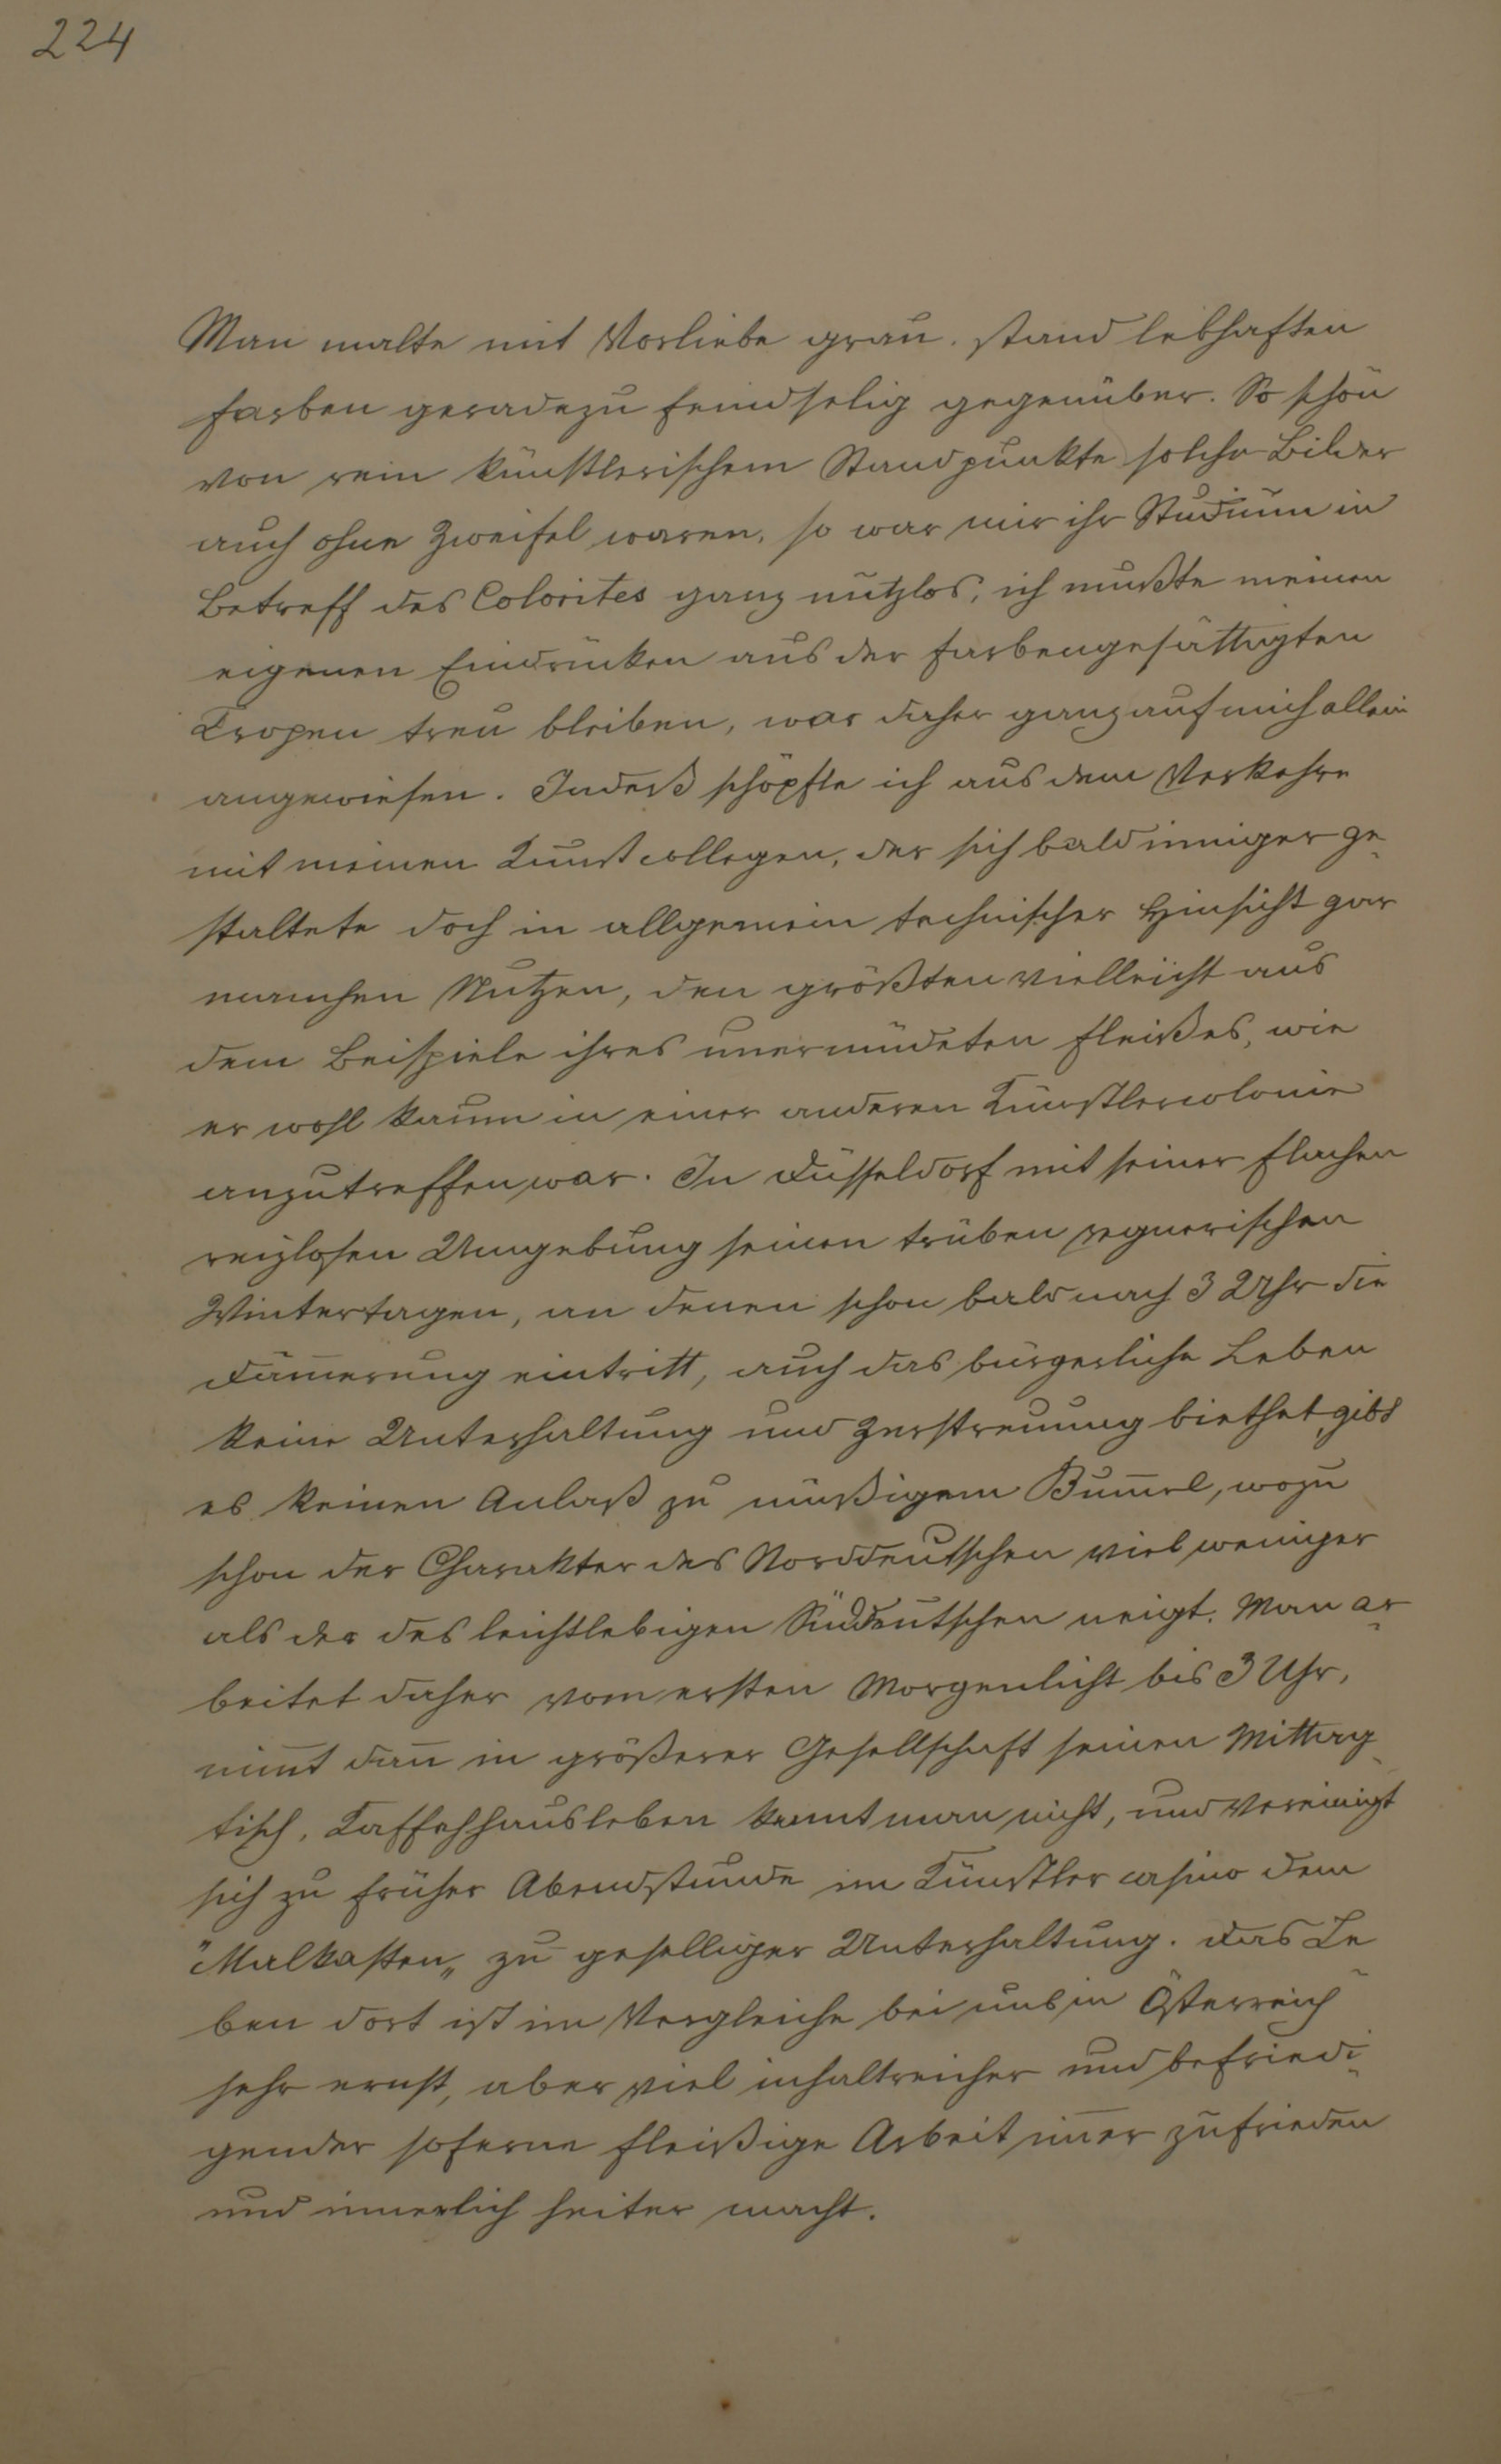 224
Man malte mit Vorliebe grau, stand lebhaften
Farben geradezu feindselig gegenüber. So schön
von rein künstlerischem Standpunkte solche Bilder
auch ohne Zweifel waren, so war mir ihr Studium in
Betreff des Colorites ganz nutzlos, ich mußte meinen
eigenen Eindrücken aus der farbengesättigten
Tropen treu bleiben, war daher ganz auf mich allein
angewiesen. Indeß schöpfte ich aus dem Verkehre
mit meinen Kunstcollegen, der sich bald inniger ge-
staltete doch in allgemein technischer Hinsicht gar
manchen Nutzen, den größten vielleicht aus
dem Beispiele ihres unermüdeten Fleißes, wie
er wohl kaum in einer anderen Künstlercolonie
anzutreffen war. In Düsseldorf mit seiner flachen
reizlosen Umgebung seinen trüben regnerischen
Wintertagen, an denen schon bald nach 3 Uhr die
Däm̄erung eintritt, auch das bürgerliche Leben
keine Unterhaltung und Zerstreuung biethet, gibt
es keinen Anlaß zu müßigem Bum̄el, wozu
schon der Charakter des Norddeutschen viel weniger
als der des leichtlebigen Süddeutschen neigt. Man ar-
beitet daher vom ersten Morgenlicht bis 3 Uhr,
nim̄t dan̄ in größerer Gesellschaft seinen Mittag-
tisch, Kaffehhausleben kennt man nicht, und vereinigt
sich zu früher Abendstunde im Künstlercasino dem
"Malkasten„ zu geselliger Unterhaltung. Das Le-
ben dort ist im Vergleiche bei uns in Österreich
sehr ernst, aber viel inhaltreicher und befriedi-
gender soferne fleißige Arbeit im̄er zufrieden
und innerlich heiter macht.